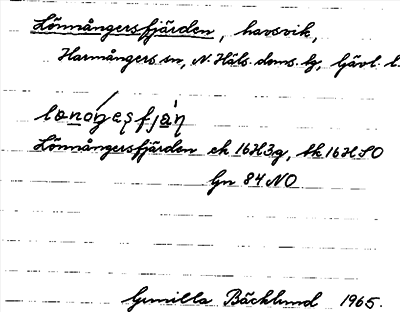 Lönnångersfjärden, havsvik,
Harmångers sn, N. Häls. doms. tg, Gävl. l.
Lönnångersfjärden ek 16H3g, tk 16H SO
Gn 84 NO
Gunilla Bäcklund 1965.